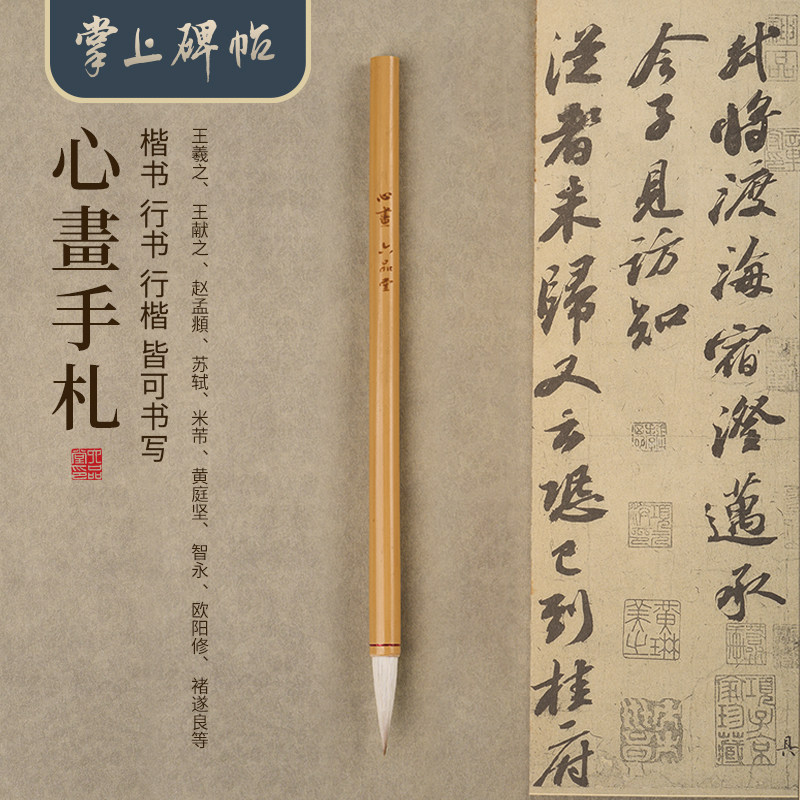 掌上碑帖
心畫手札
楷书 行书 行楷 皆可书写
王羲之、王献之、赵孟頫、苏轼、米芾、黄庭坚、智永、欧阳修、褚遂良等
心畫 六品堂
軾將渡海宿澄邁承
令子見訪知
從者未歸又云恐已到桂府
黄琳美之
項子京家珍藏
具